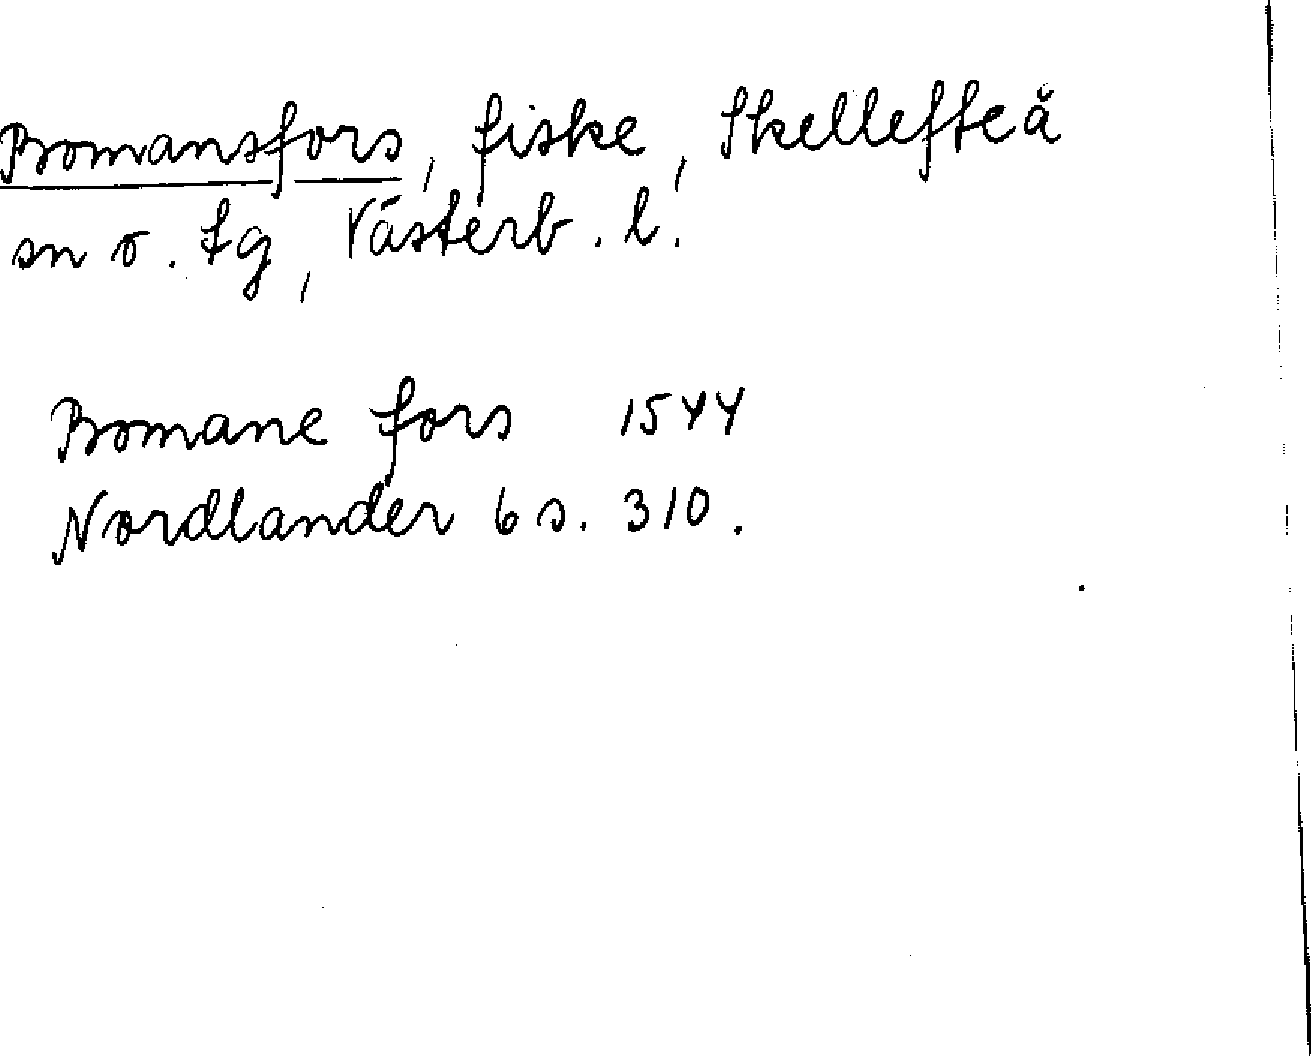 Bomansfors, fiske, Skellefteå
sn o. tg, Västerb. l.
Bomane fors 1544
Nordlander 6 s. 310.